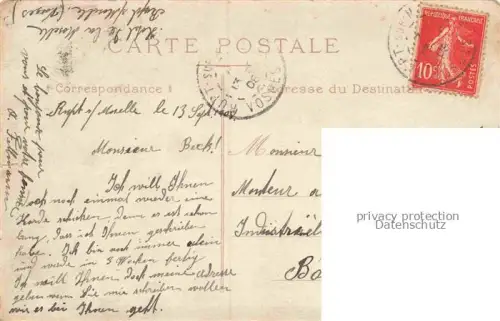 Hotel de la Moselle
Rupt s/Moselle (Vosges)
CARTE POSTALE
Correspondance
Adresse du Destinataire
RÉPUBLIQUE FRANÇAISE
10c
VOSGES
Rupt s/ Moselle le 13 Sept.
Monsieur Beck!
Ich will Ihnen
doch noch einmal wieder eine
Karde schicken, denn es ist schon
lang, das ich Ihnen geschrieben
habe. Ich bin noch immer allein
und werde in 3 Wochen fertig
Ich will Ihnen doch meine adresse
geben wenn Sie mir schreiben wollen
wie es bei Ihnen geht.
Le bonjour pour
vous et pour votre femme
Monsieur
Monteur
privacy protection
Datenschutz